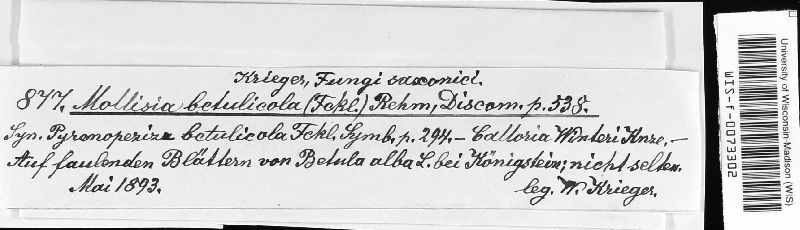 Krieger, Fungi saxonici.
877. Mollisia betulicola (Fckl.) Rehm, Discom. p. 538.
Syn. Pyrenopeziza betulicola Fckl. Symb. p. 294. — Calloria Winteri Knze. —
Auf faulenden Blättern von Betula alba L. bei Königstein; nicht selten.
Mai 1893. leg. W. Krieger.
University of Wisconsin Madison (WIS)
WIS-f-0073302